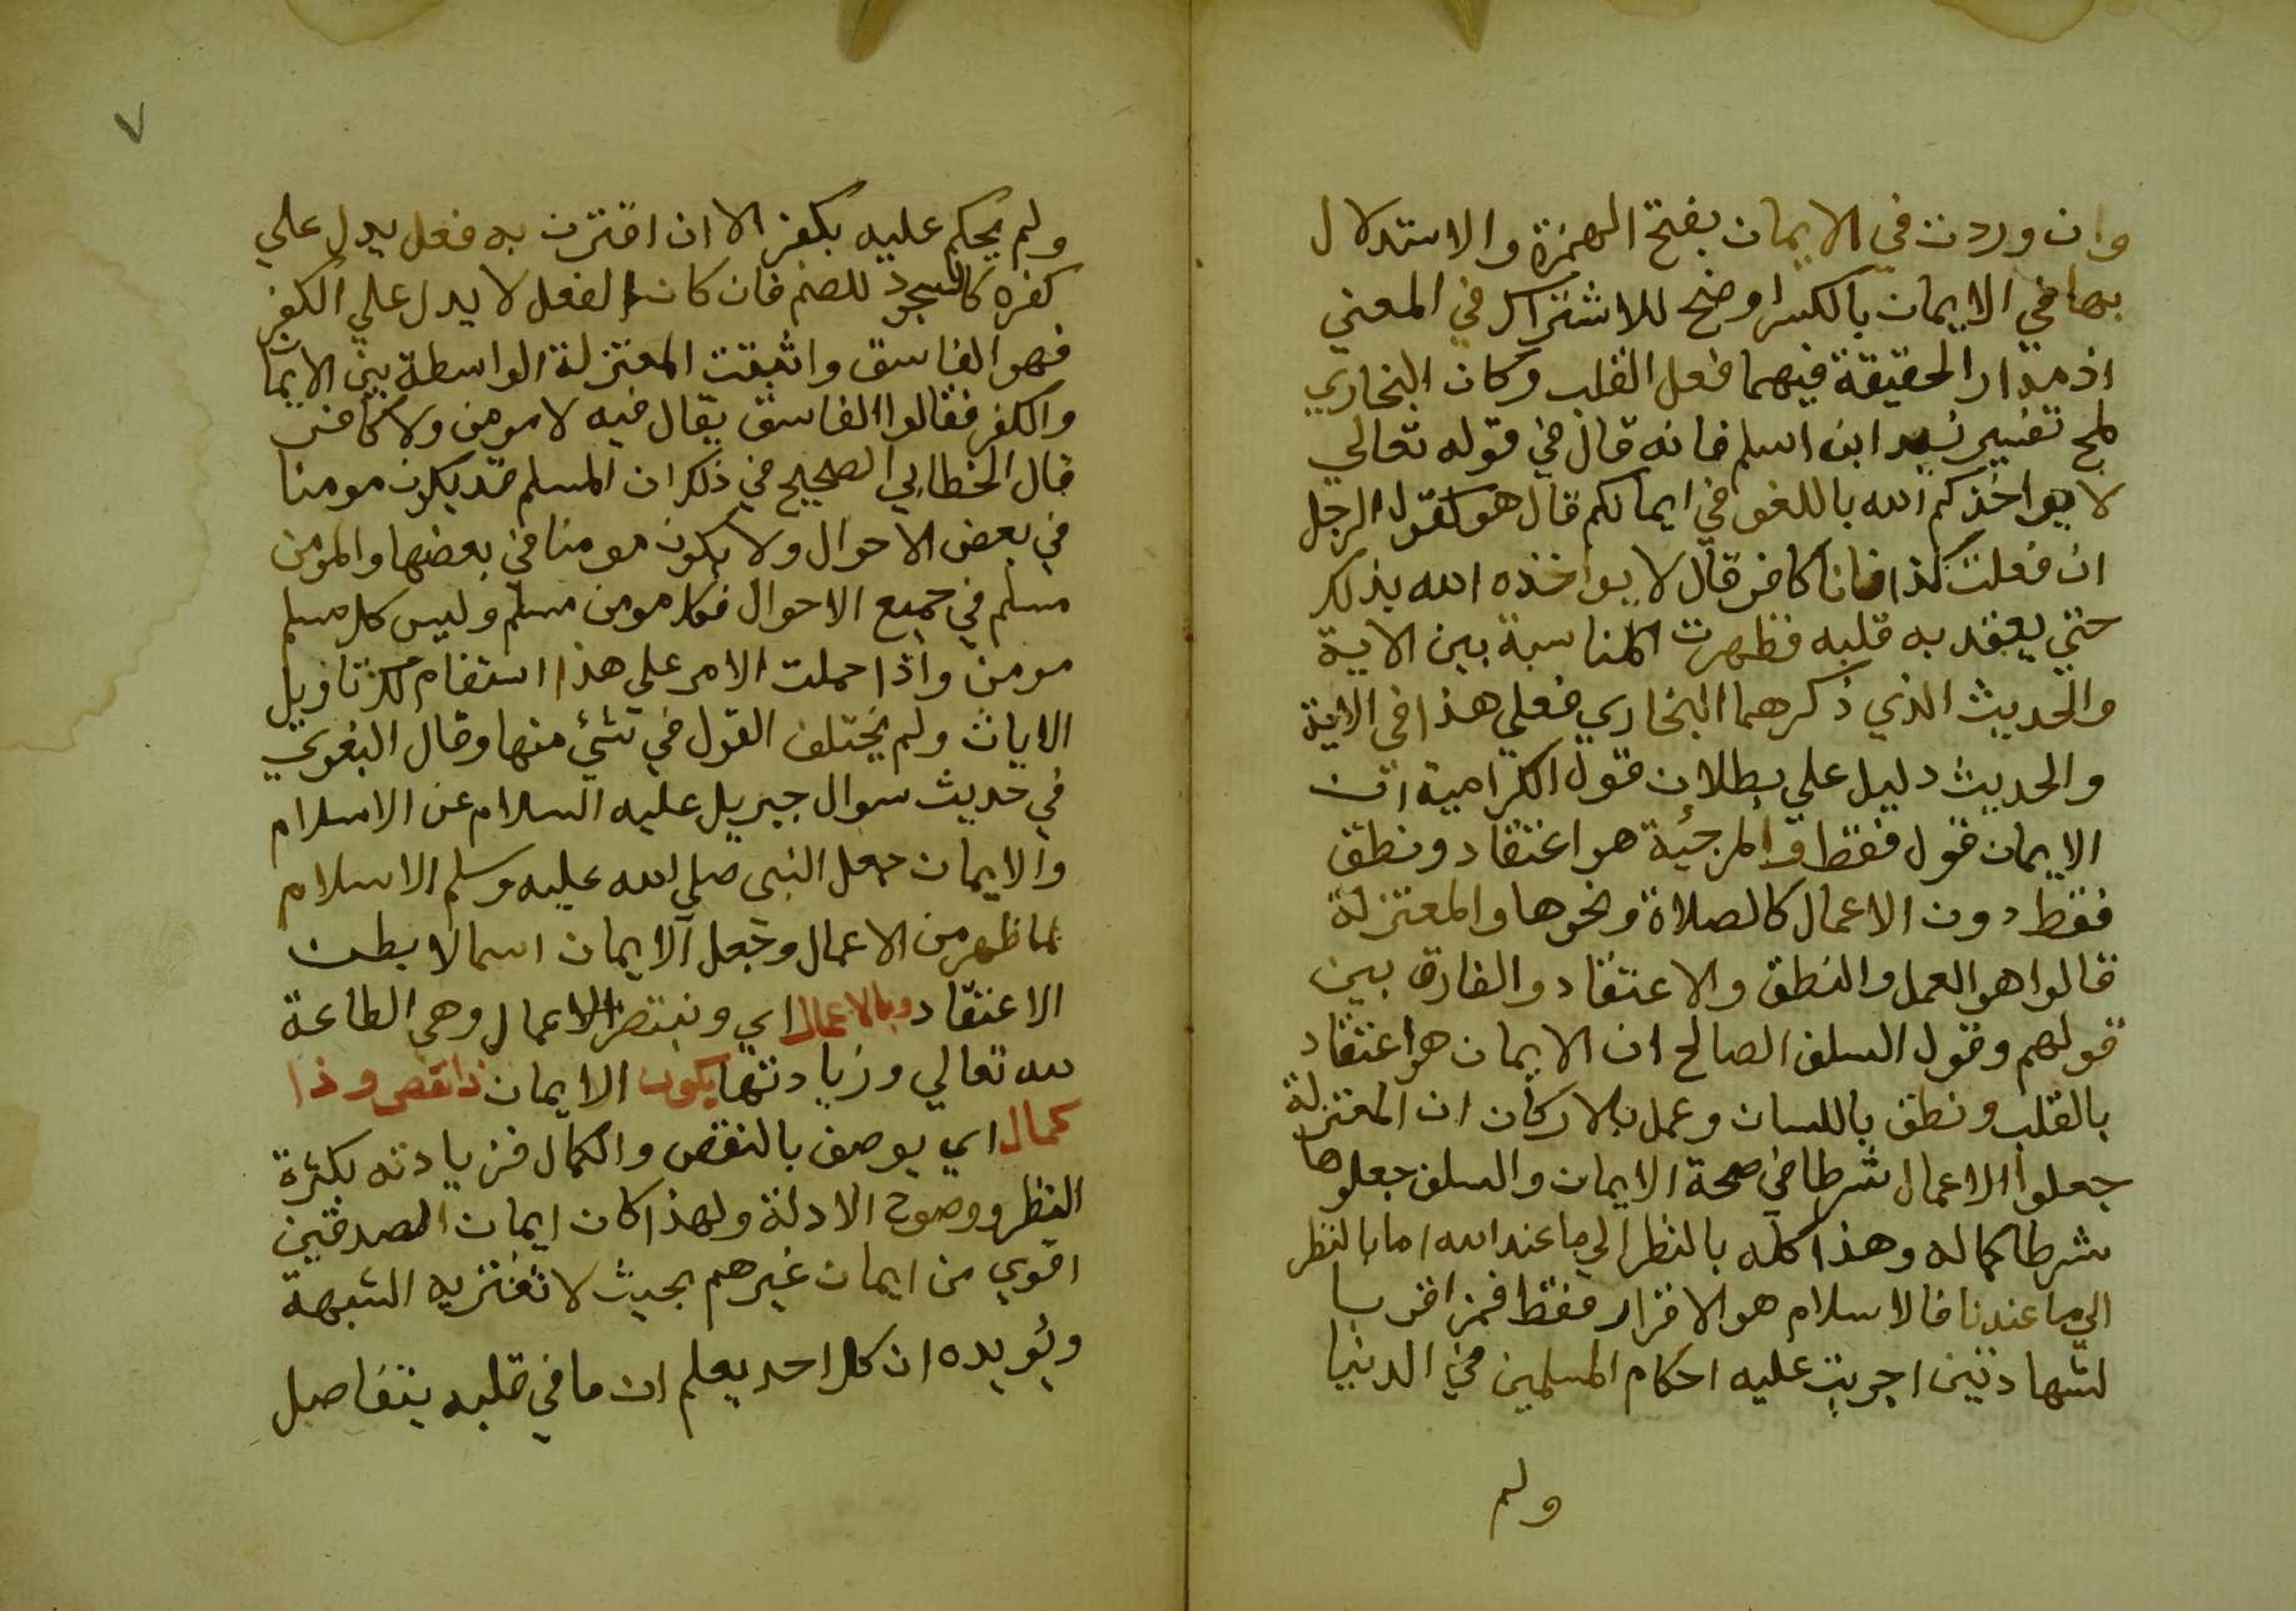 وان وردت في الايمان بفتح الهمزة والاستدلال
بها في الايمان بالكسر اوضح للاشتراك في المعني
اذ مدار الحقيقة فيهما فعل القلب وكان البخاري
لمح تفسير ابن اسلم فانه قال في قوله تعالي
لا يواخذكم الله باللغو في ايمانكم قال هو كقول الرجل
ان فعلت كذا فانا كافر قال لا يواخذه الله بذلك
حتي يعقد به قلبه فظهرت المناسبة بين الاية
والحديث الذي ذكرهما البخاري فعلي هذا في الاية
والحديث دليل علي بطلان قول الكرامية ان
الايمان قول فقط والمرجئة هو اعتقاد ونطق
فقط دون الاعمال كالصلاة ونحوها والمعتزلة
قالوا هو العمل والنطق والاعتقاد والفارق بين
قولهم وقول السلف الصالح ان الايمان هو اعتقاد
بالقلب ونطق باللسان وعمل بالاركان ان المعتزلة
جعلوا الاعمال شرطا في صحة الايمان والسلف جعلوها
شرطا لكماله وهذا كله بالنظر الي ما عند الله اما بالنظر
الي ما عندنا فالاسلام هو الاقرار فقط فمن اقر با
لشهادتين اجريت عليه احكام المسلمين في الدنيا
ولم
٧
ولم يحكم عليه بكفر الا ان اقترن به فعل يدل علي
كفره كالسجود للصنم فان كان الفعل لا يدل علي الكفر
فهو الفاسق واثبتت المعتزلة الواسطة بين الايما
والكفر فقالوا الفاسق يقال فيه لا مومن ولا كافر
قال الخطابي الصحيح في ذلك ان المسلم قد يكون مومنا
في بعض الاحوال ولا يكون مومنا في بعضها والمومن
مسلم في جميع الاحوال فكل مومن مسلم وليس كل مسلم
مومن واذا حملت الامر علي هذا استقام لك تاويل
الايات ولم يختلف القول في شئ منها وقال البغوي
في حديث سوال جبريل عليه السلام عن الاسلام
والايمان جعل النبي صلي الله عليه وسلم الاسلام
لما ظهر من الاعمال وجعل الايمان اسما لا بطن
الاعتقاد وبالاعمال اي الاعمال وهي الطاعة
لله تعالي وزيادتها يكون الايمان ذا نقص وذا
كمال اي يوصف بالنقص والكمال فزيادته بكثرة
النظر ووضوح الادلة ولهذا كان ايمان الصديقين
اقوي من ايمان غيرهم بحيث لا تعتريه الشبهة
ويؤيده ان كل احد يعلم ان ما في قلبه يتفاضل